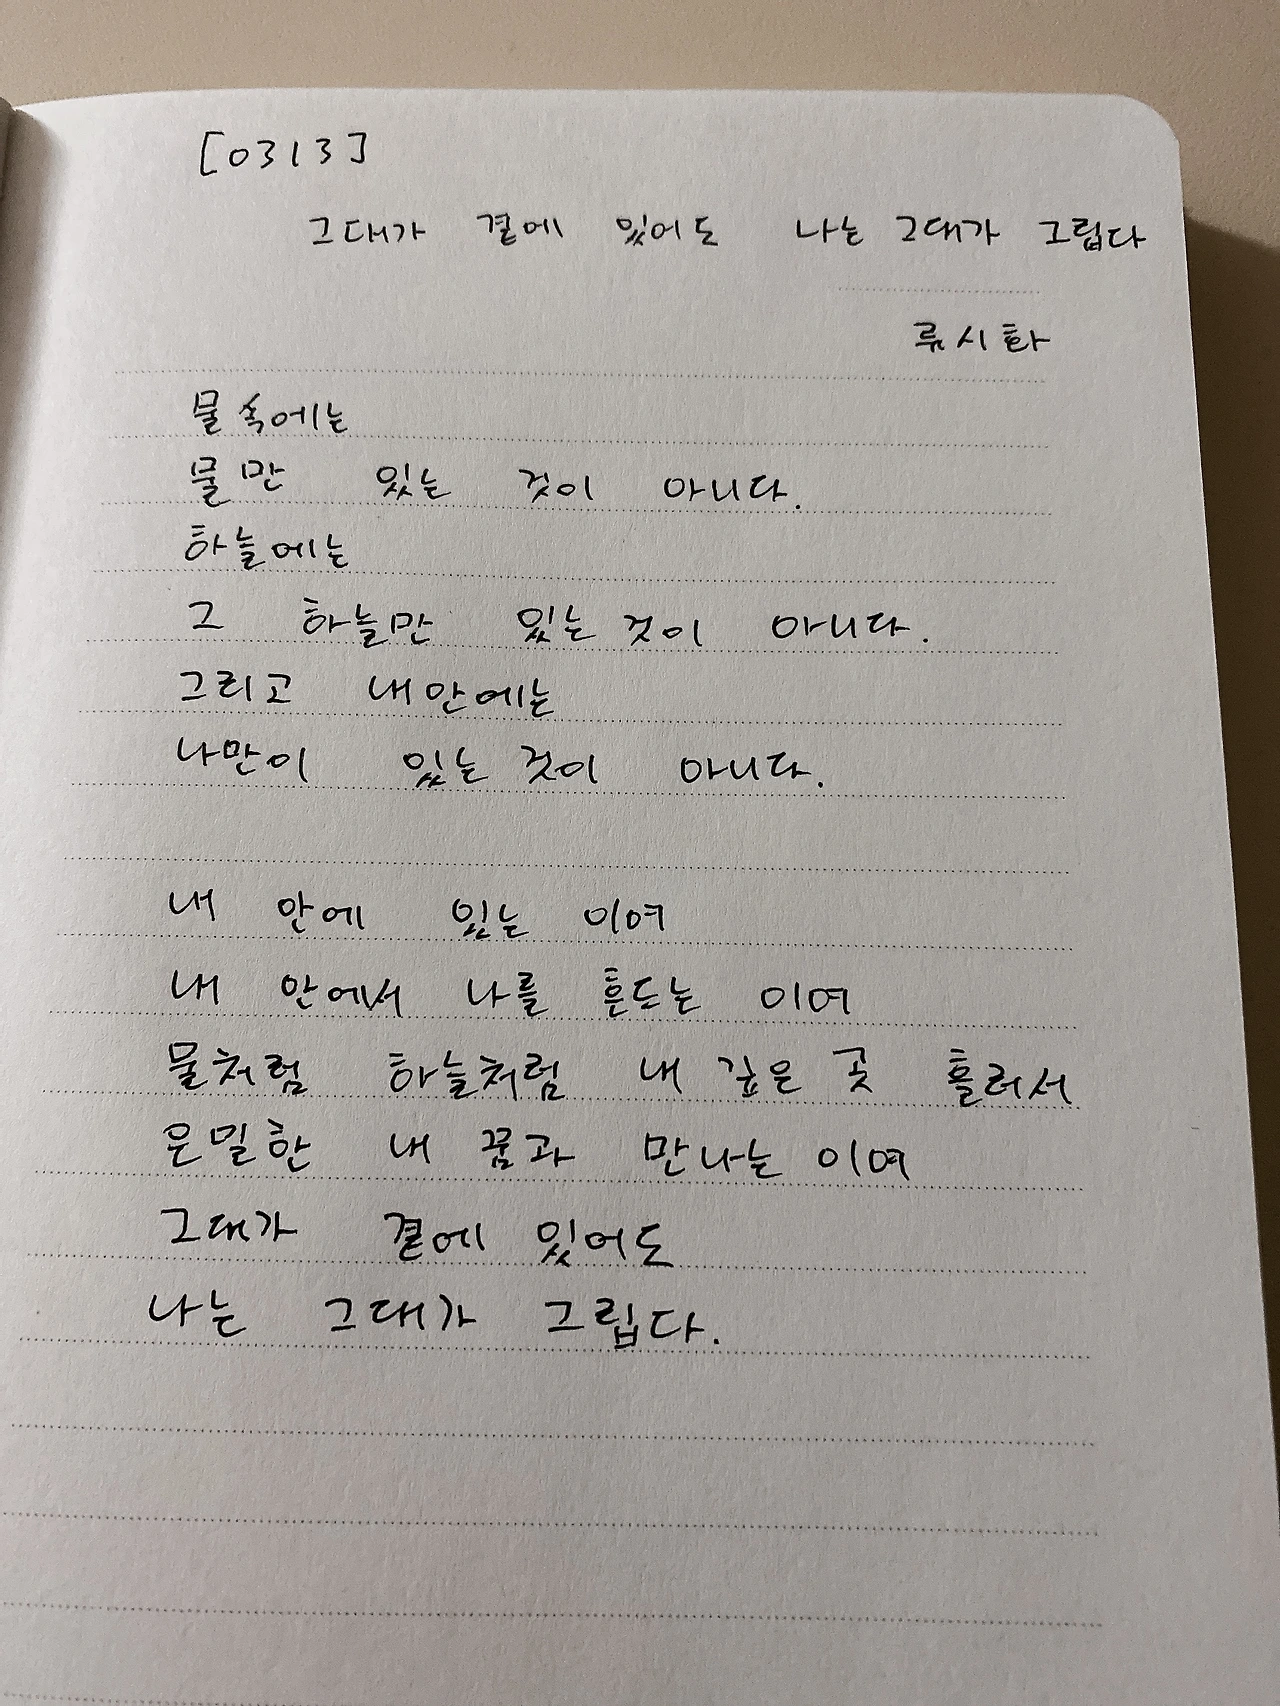 [0313]
그대가 곁에 있어도 나는 그대가 그립다
류시화
물속에는
물만 있는 것이 아니다.
하늘에는
그 하늘만 있는 것이 아니다.
그리고 내안에는
나만이 있는 것이 아니다.
내 안에 있는 이여
내 안에서 나를 흔드는 이여
물처럼 하늘처럼 내 깊은 곳 흘러서
은밀한 내 꿈과 만나는 이여
그대가 곁에 있어도
나는 그대가 그립다.